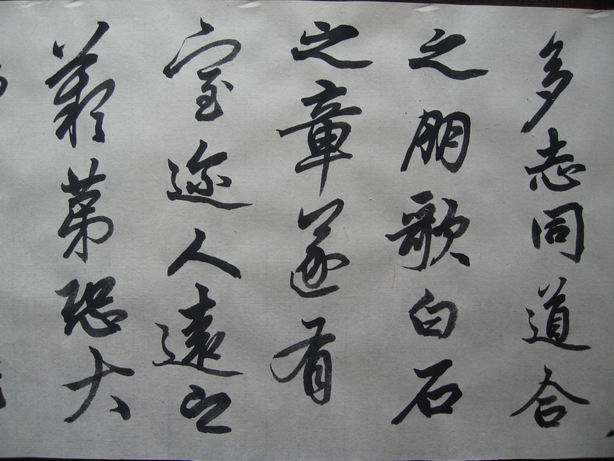 多志同道合
之朋歌白石
之章遂有
室迩人遠之
羡第恐大